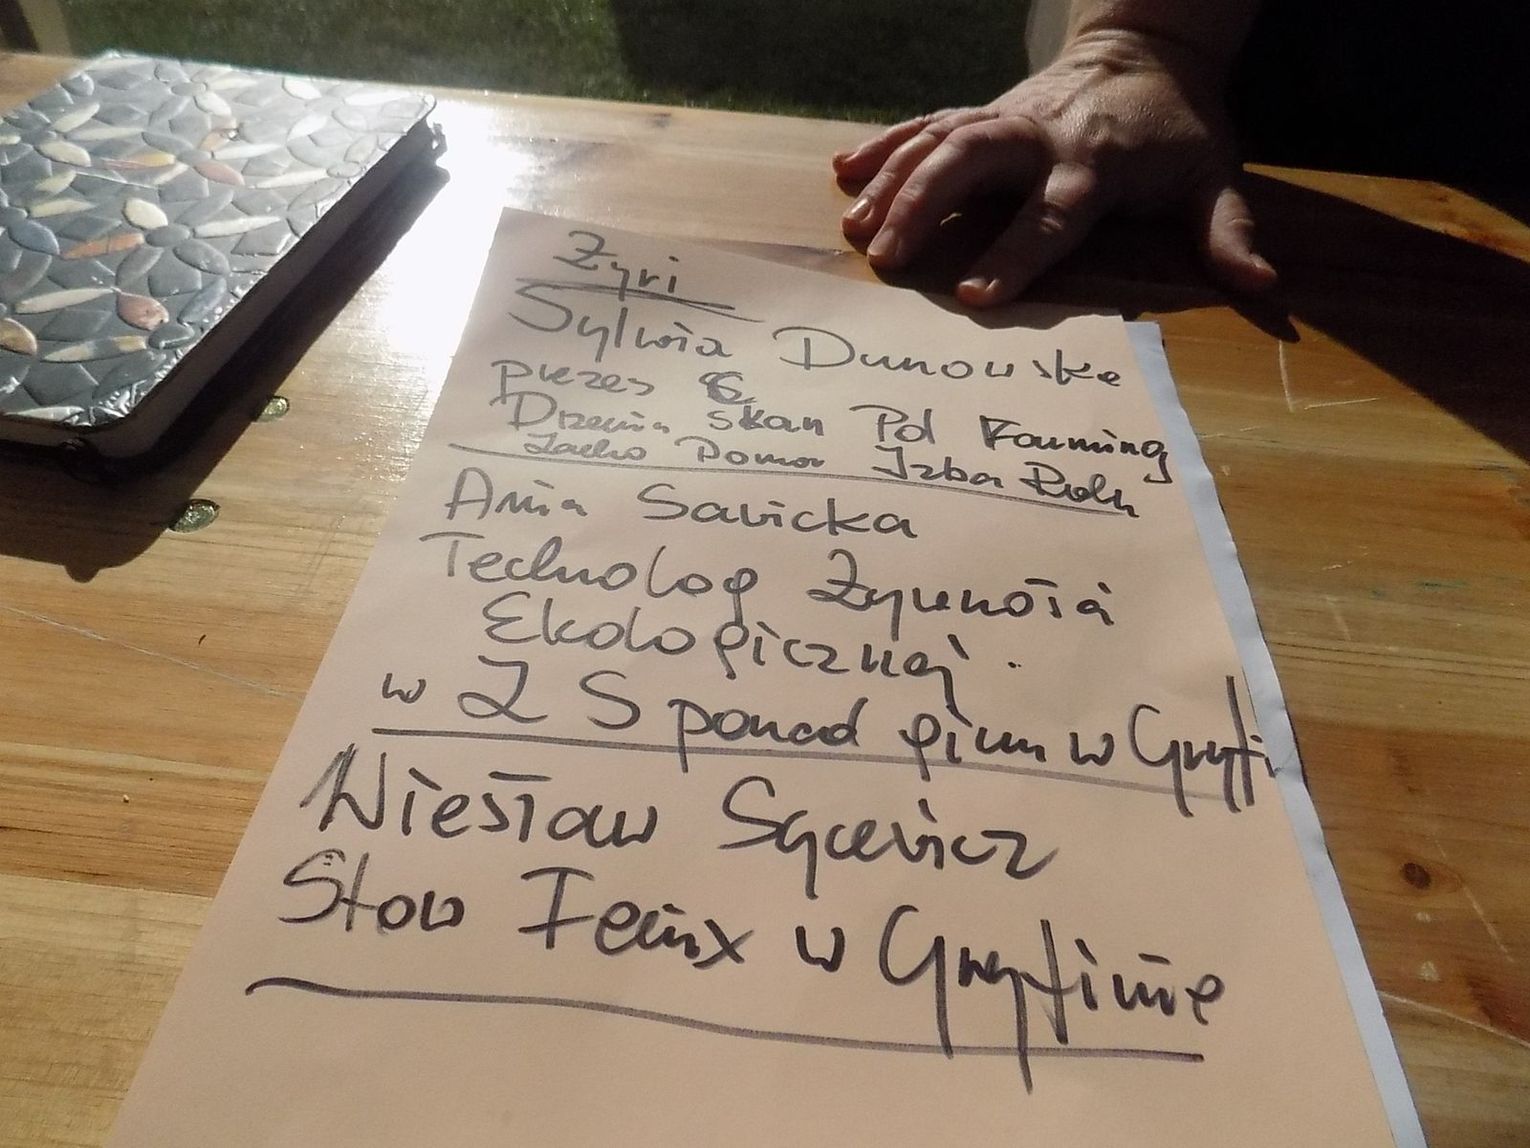 Żyri
Sylwia Dunowska
prezes
skan Pol Farming
Zacho Pomor Izba Roln
Ania Sawicka
Technolog Żywności
Ekologicznej.
w Z S ponad gimn w Gryfi
Wiesław Sycewicz
Stow Fenix w Gryfinie